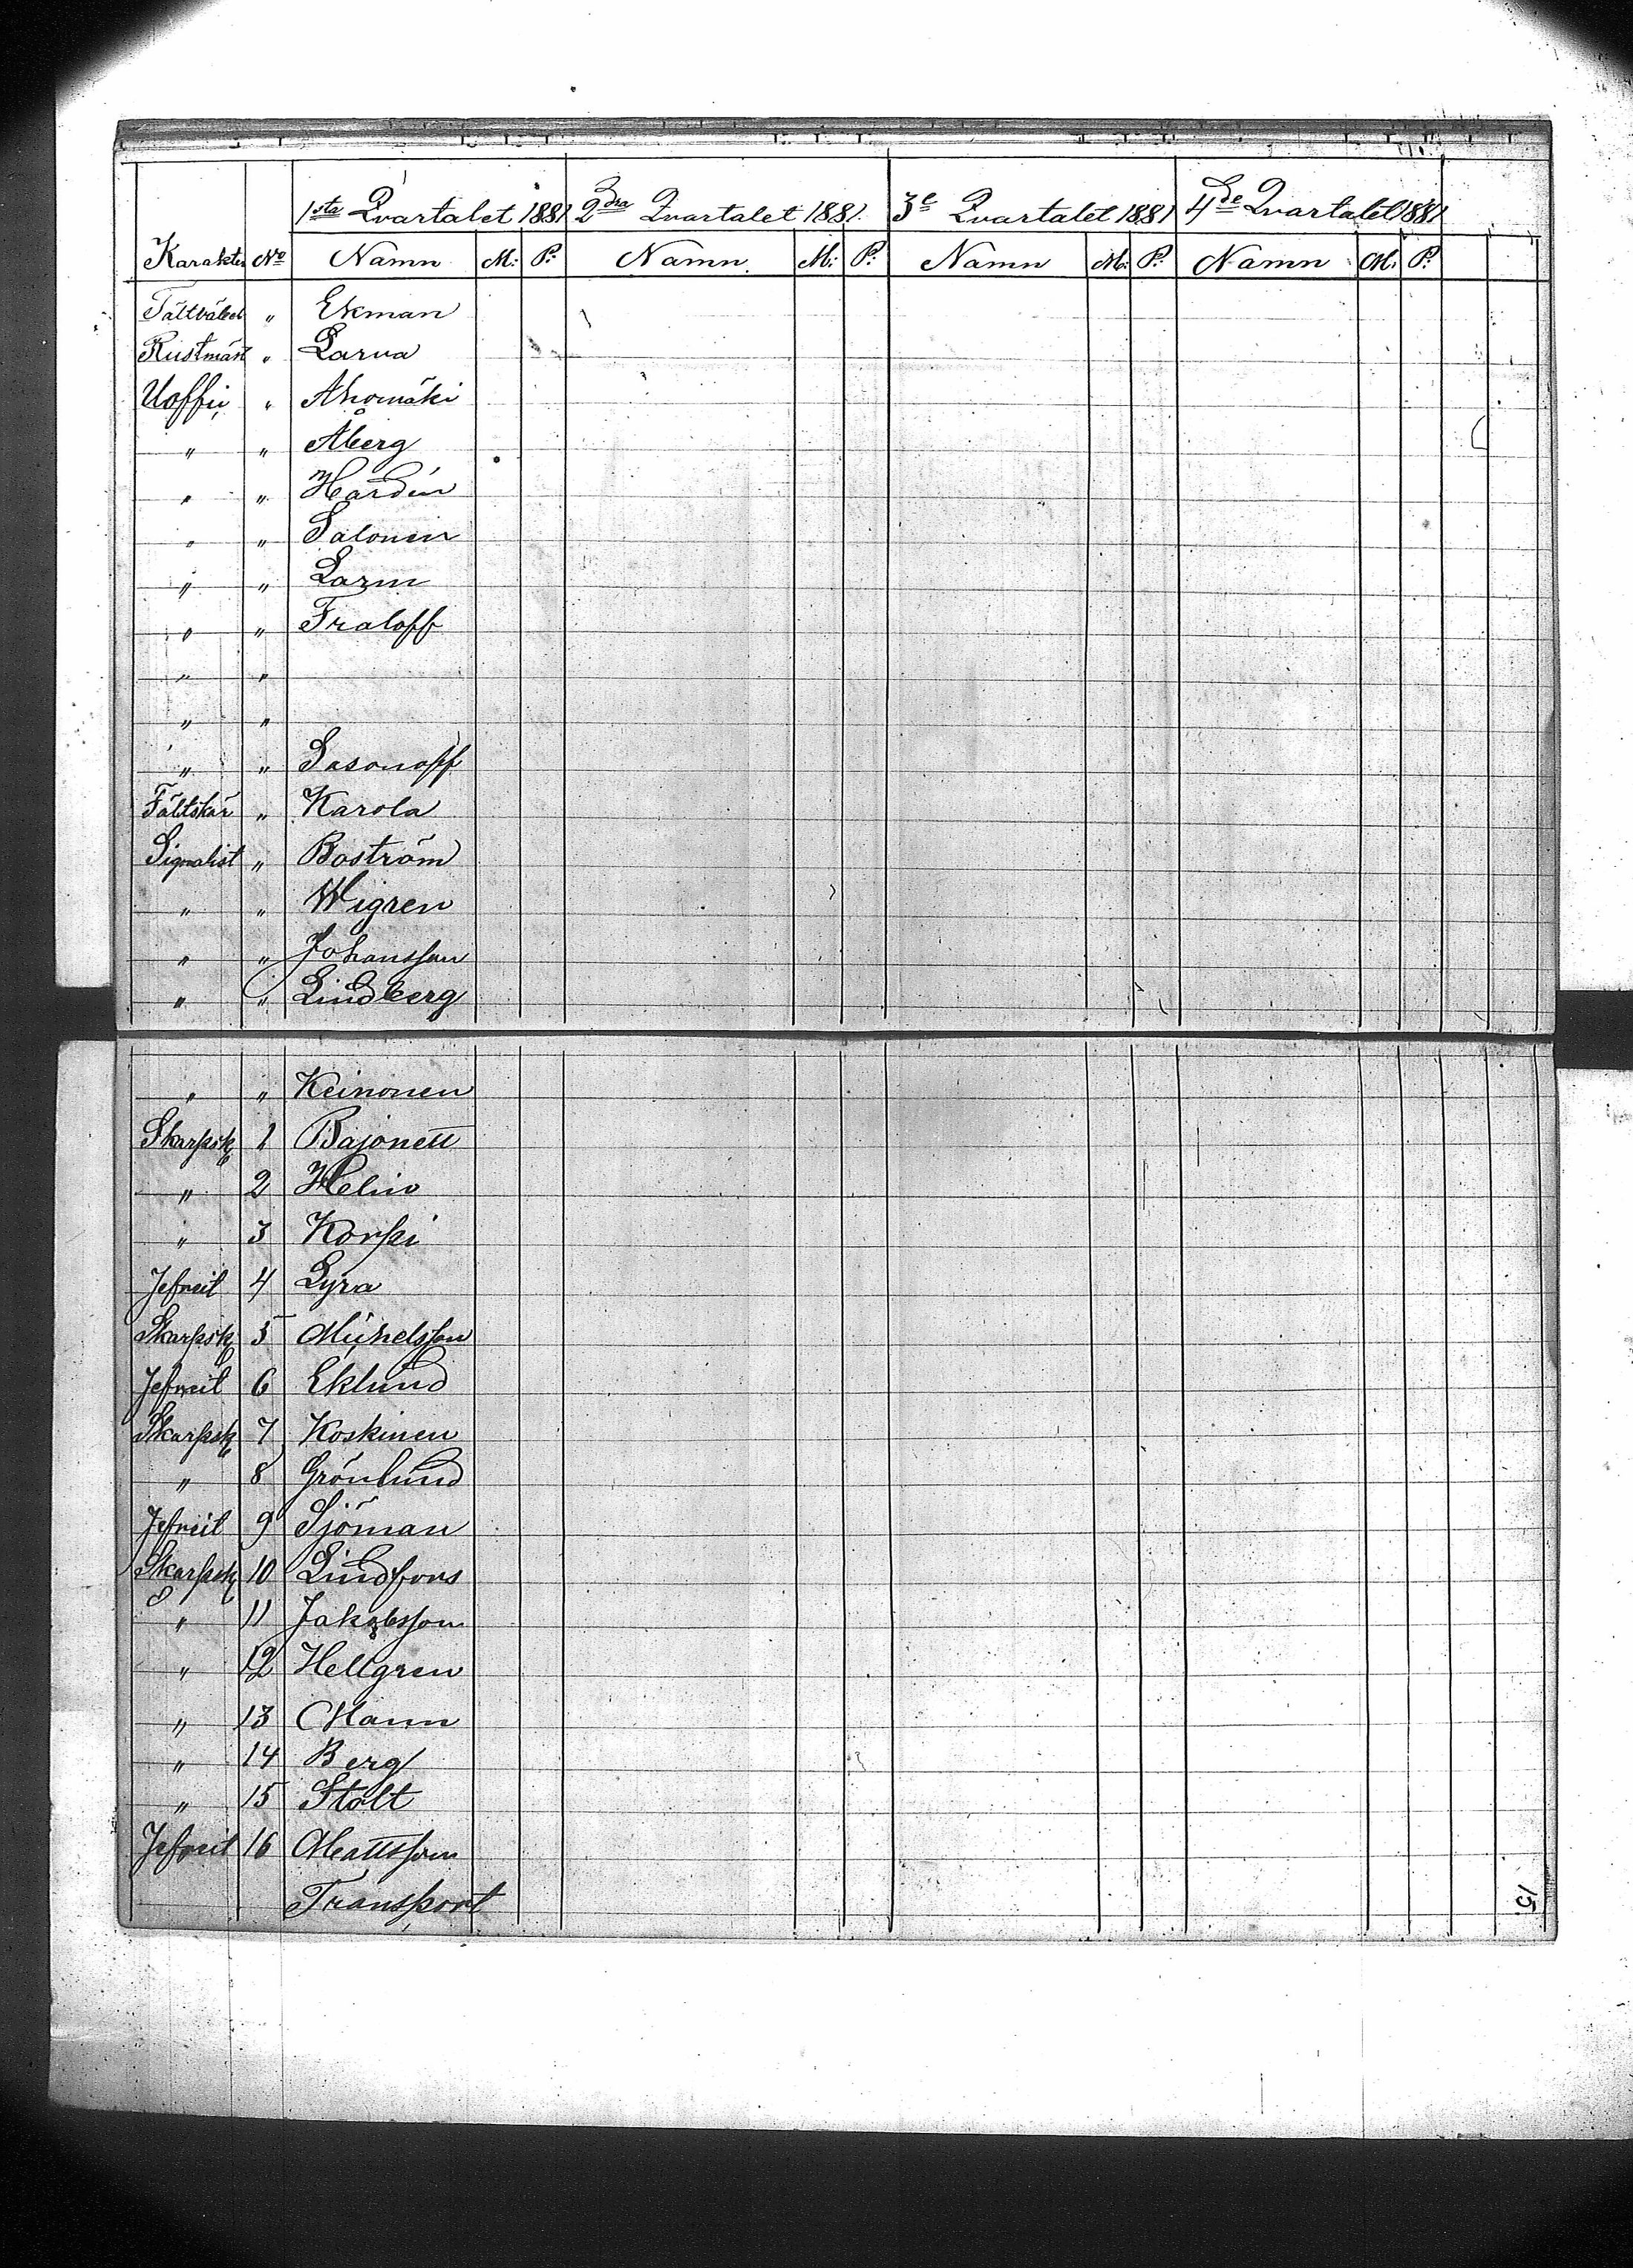 1sta Qvartalet 1881 2dra Qvartalet 1881. 3e Qvartalet 1881 4de Qvartalet 1881
Karakter No Namn M: P: Namn M: P: Namn M: P: Namn M: P:
" Ekman
Rustmäst " Larva
Uoffic " Ahomäki
" " Åberg
" " Hardin
" " Salonen
" " Larm
" " Fraloff
" "
" "
" " Sasonoff
Fältskär " Karola
Signalist " Boström
" " Wigren
" " Johansson
" " Lindberg
" " Keinonen
Skarpsk 1 Bajonett
" 2 Helin
" 3 Korpi
Jefreit 4 Lyra
Skarpsk 5 Michelsson
Jefreit 6 Eklund
Skarpsk 7 Koskinen
" 8 Grönlund
Jefreit 9 Sjöman
Skarpsk 10 Lindfors
" 11 Jakobsson
" 12 Hellgren
" 13 Mann
" 14 Berg
" 15 Stolt
Jefreit 16 Mattsson
Transport
15.